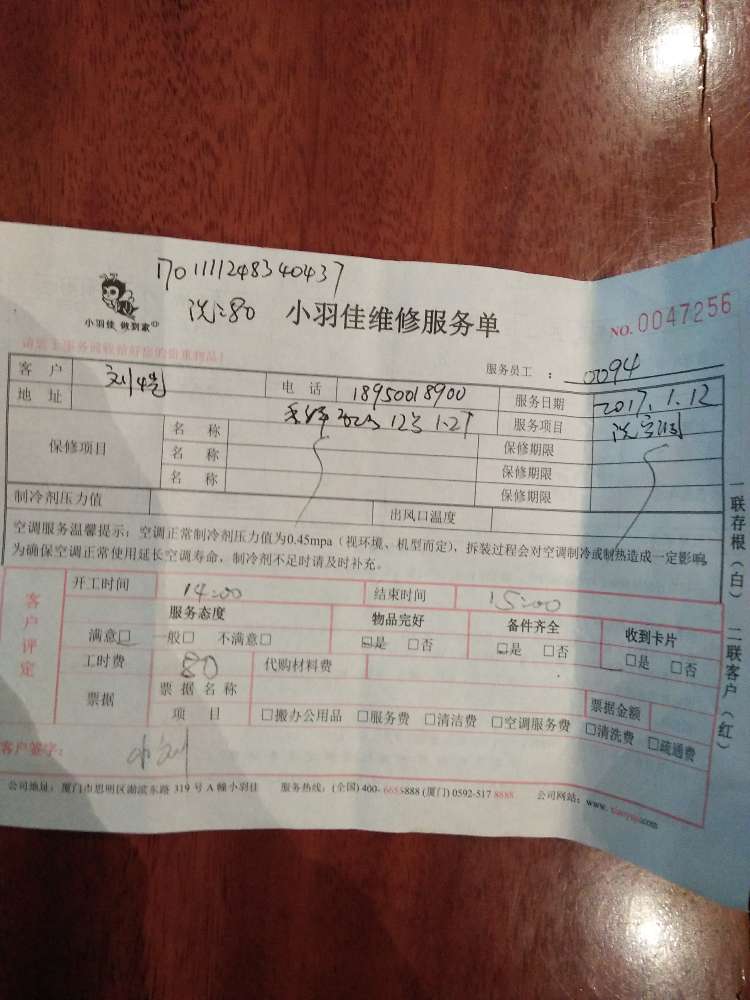 1701111248340437
洗:80
小羽佳 做到家
小羽佳维修服务单
NO. 0047256
服务员工 : 0094
客户 刘 电话 18950018900 服务日期 2017.1.12
地址 12号 服务项目 洗空调
保修项目 名称 保修期限
名称 保修期限
名称 保修期限
制冷剂压力值 出风口温度
空调服务温馨提示:空调正常制冷剂压力值为0.45mpa(视环境、机型而定),拆装过程会对空调制冷或制热造成一定影响,
为确保空调正常使用延长空调寿命,制冷剂不足时请及时补充。
客户评定
开工时间 14:00 结束时间 15:00
服务态度 物品完好 备件齐全 收到卡片
满意□ 一般□ 不满意□ □是 □否 □是 □否 □是 □否
工时费 80 代购材料费
票据 票据名称 票据金额
项目 □搬办公用品 □服务费 □清洁费 □空调服务费 □清洗费 □疏通费
客户签字: 小刘
公司地址:厦门市思明区湖滨东路 319 号 A 幢小羽佳 服务热线:(全国) 400-6655888 (厦门) 0592-517 8888 公司网站:
一联存根(白) 二联客户(红)